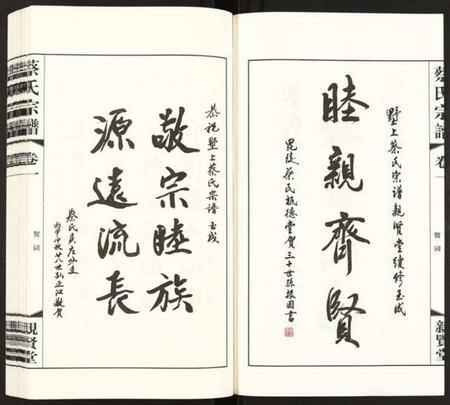 蔡氏宗譜
卷一
賀詞
親賢堂
墅上蔡氏宗譜親賢堂續修玉成
睦親齊賢
毘陵蔡氏報德堂賀三十世孫振國書
恭祝墅上蔡氏宗譜玉成
敬宗睦族
源遠流長
蔡氏宗譜
卷一
賀詞
親賢堂